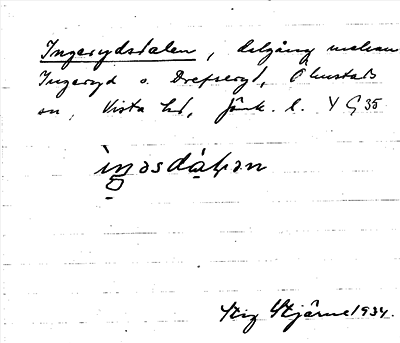 Ingerydsdalen, dalgång mellan
Ingeryd o. Drefseryd, Ölmstads
sn, Vista hd, Jönk. l. Y G 35
ìŋəsdàɫən
Stig Stjärne 1934.